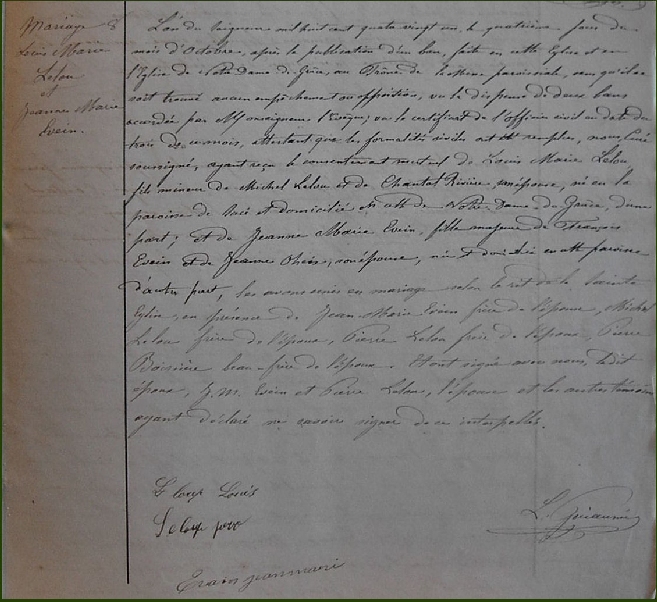 Mariage de
Louis Marie
Lelou
et
Jeanne Marie
Evein.
L'an du Seigneur mil huit cent quatre vingt un, le quatrième jour du
mois d'Octobre, après la publication d'un ban, faite en cette Eglise et en
l'Eglise de Notre Dame de Grâce, au Prône de la Messe paroissiale, sans qu'il se
soit trouvé aucun empêchement ou opposition, vu la dispense de deux bans
accordée par Monseigneur l'Evêque, vu le certificat de l'officier civil en date du
trois de ce mois, attestant que les formalités civiles ont été remplies, nous, Curé
soussigné, ayant reçu le consentement mutuel de Louis Marie Lelou
fils mineur de Michel Lelou et de Chantal Rivière, son épouse, né en la
paroisse de et domicilié en celle de Notre-Dame de Grâce, d'une
part; et de Jeanne Marie Evein, fille majeure de François
Evein et de Jeanne son épouse, née et domiciliée en cette paroisse
d'autre part, les avons unis en mariage selon le rit de la Sainte
Eglise, en présence de Jean Marie Evein frère de l'épouse, Michel
Lelou frère de l'époux, Pierre Lelou frère de l'époux, Pierre
Boissière beau-frère de l'époux. Et ont signé avec nous, ledit
époux, J. M. Evein et Pierre Lelou, l'épouse et les autres témoins
ayant déclaré ne savoir signer de ce interpellés.
Le loup Louis
Le loup
Evain jeanmarie